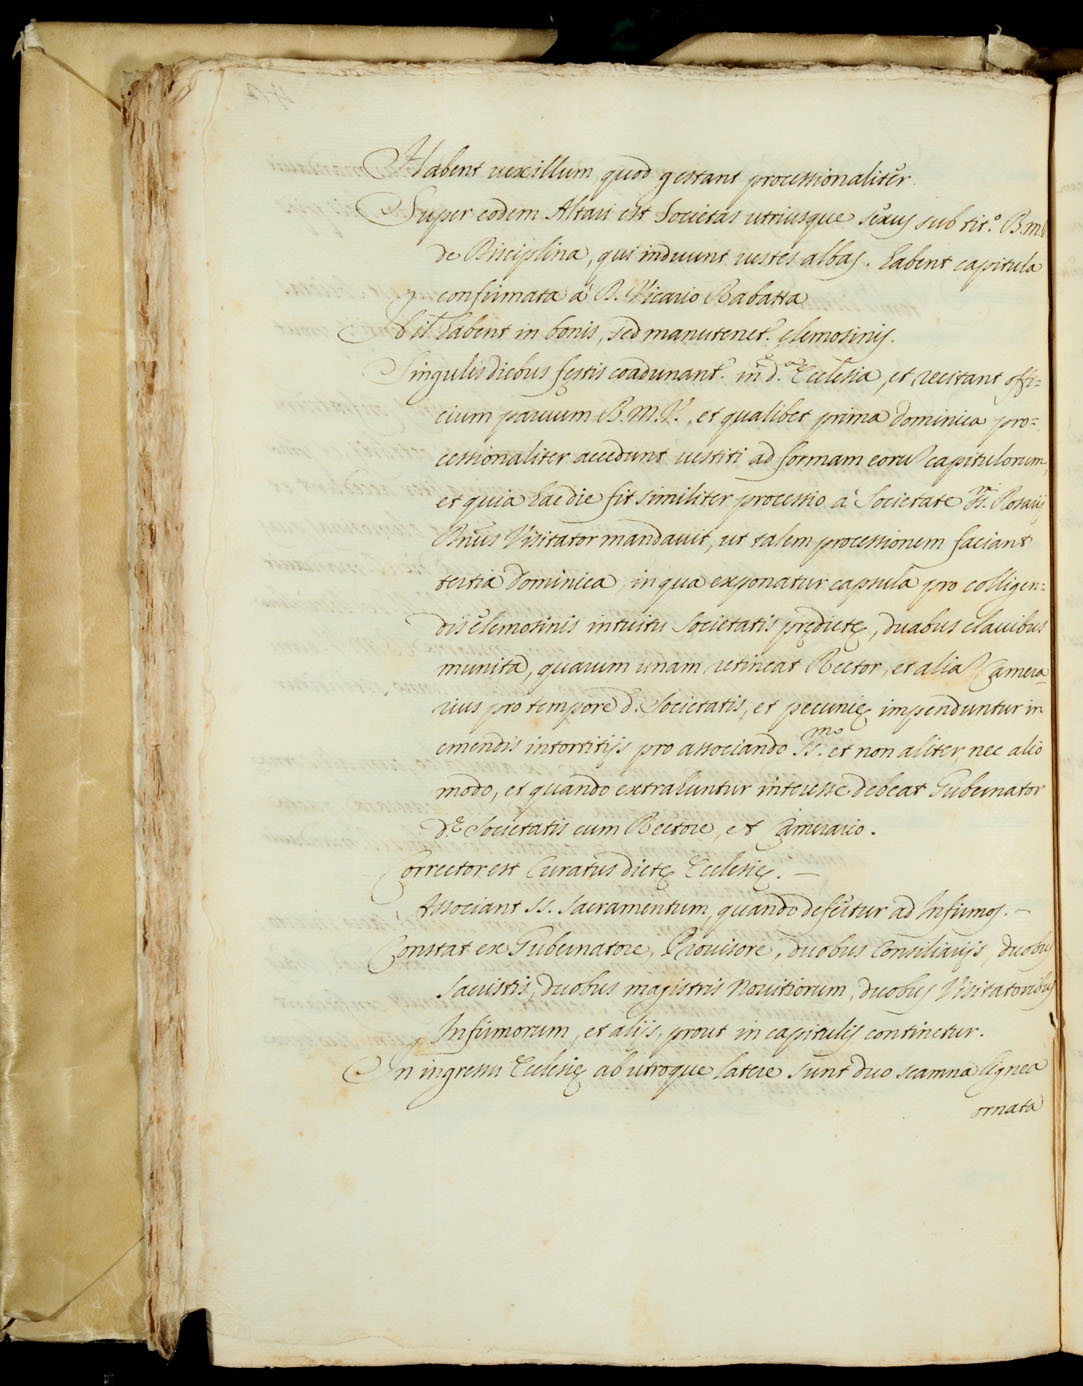 Habent uexillum, quod gestant processionaliter.
Super eodem Altari est Societas utriusque sexus sub tit.º B.M.V
de Disciplina, qui induunt uestes albas. habent capitula
confirmata à D. Vicario Rabatta
Nil habent in bonis, sed manutenet.r elemosinis.
Singulis diebus festis coadunant.r in d.a Ecclesia, et recitant offi=
cium paruum B.M.V., et qualibet prima Dominica pro=
cessionaliter accedunt uestiti ad formam eorũ capitulorum
et quia hac die fit similiter processio à Societate SS. Rosarij
Dnũs Visitator mandauit, ut talem processionem faciant
tertia Dominica, in qua exponatur capsula pro colligen=
dis elemosinis intuitu Societatis prędictę, duabus clauibus
munita, quarum unam retineat Rector, et aliã Camera=
rius pro tempore d. Societatis, et pecunię impenduntur in
emendis intortitijs pro associando SS.mo et non aliter, nec alio
modo, et quando extrahuntur interesse debeat Gubernator
d.ę Societatis cum Rectore, et Camerario.
Corrector est Curatus dictę Ecclesię. —
Associant SS. Sacramentum, quando defertur ad Infirmos. —
Constat ex Gubernatore, Prouisore, duobus Consiliarijs, duobus
Sacristis, duobus magistris Nouitiorum, duobus Visitatoribus
Infirmorum, et alijs, prout in capitulis continetur.
In ingressu Ecclesię ab utroque latere sunt duo scamna lignea
ornata